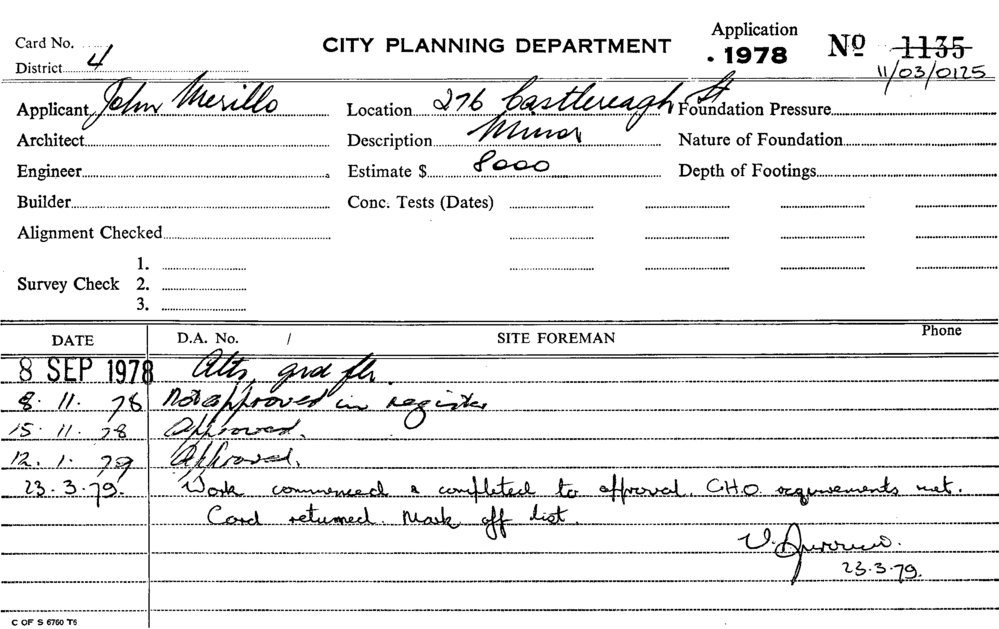 Card No.
Application
CITY PLANNING DEPARTMENT
. 1978
No 1135
District 4
11/03/0125
Applicant John Merillo
Location 276 Castlereagh St
Foundation Pressure
Architect
Description Minor
Nature of Foundation
Engineer
Estimate $ 8000
Depth of Footings
Builder
Conc. Tests (Dates)
Alignment Checked
Survey Check
1.
2.
3.
DATE
D.A. No. /
SITE FOREMAN
Phone
8 SEP 1978 Alts grd flr.
8. 11. 78 Not approved in register
15. 11. 78 Approved.
12. 1. 79 Approved.
23. 3. 79. Work commenced & completed to approval. C.H.O. requirements met.
Card returned. Mark off list.
23.3.79.
C OF S 6760 T6